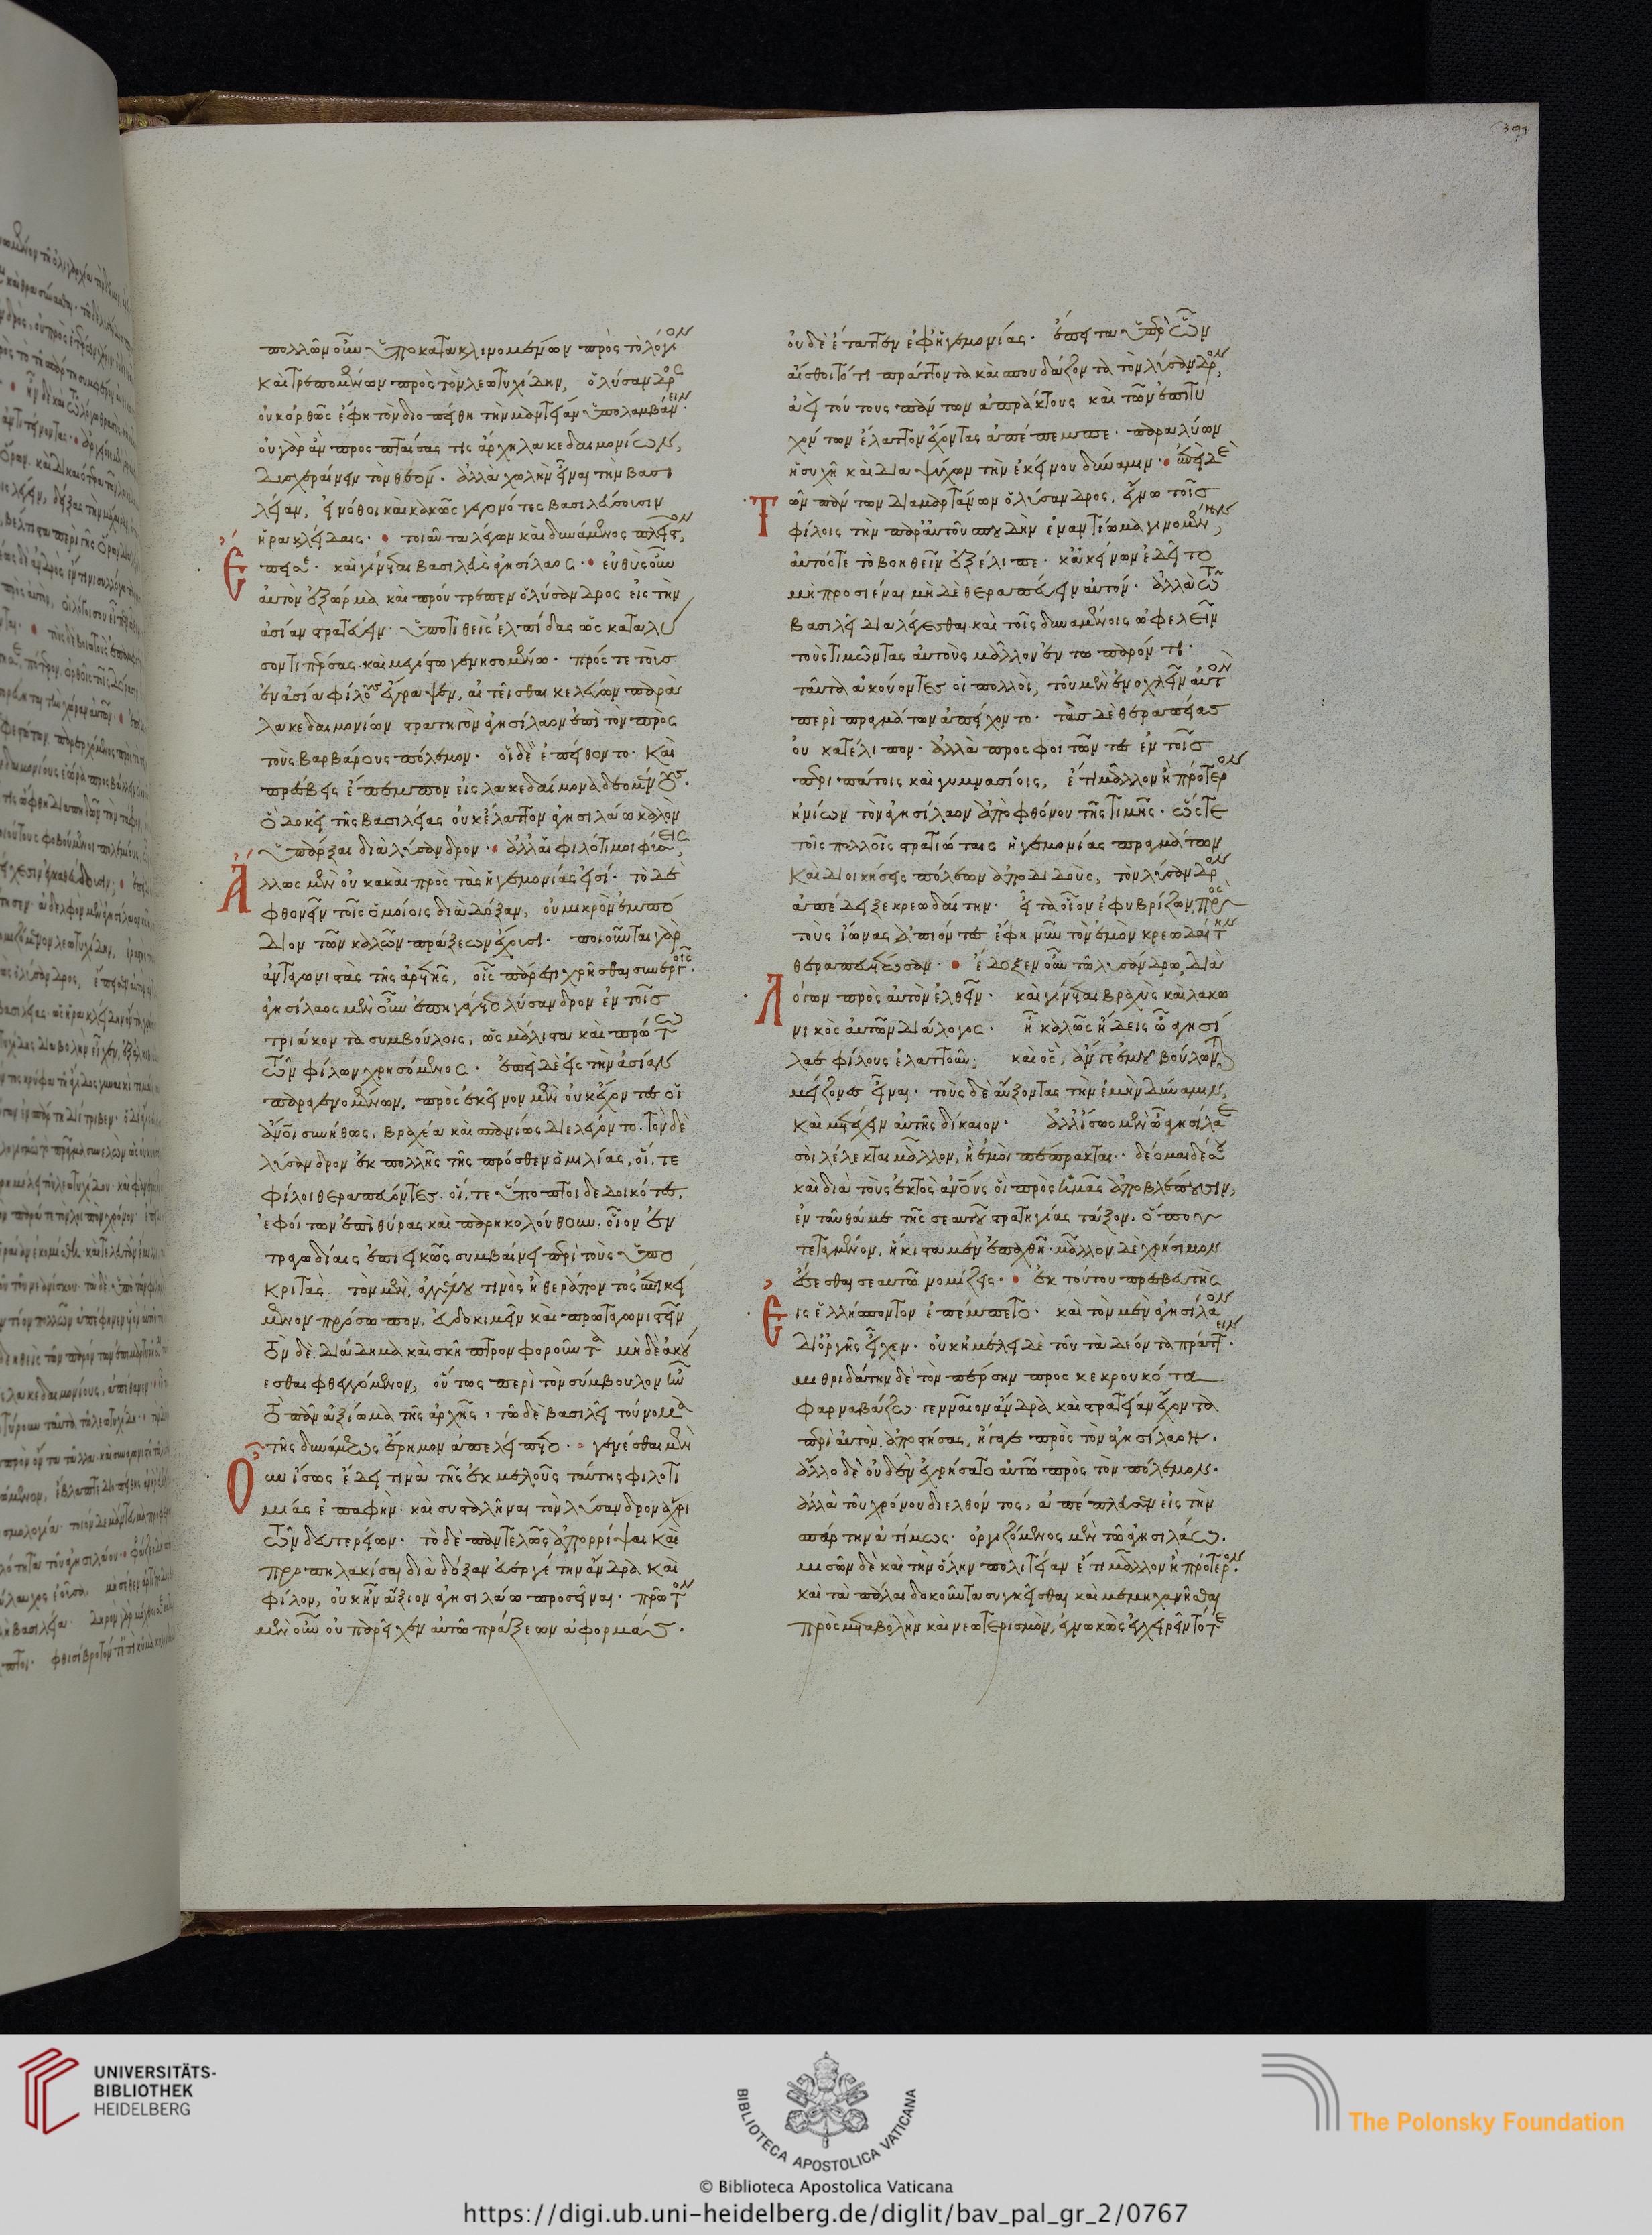 391
πολλῶν οὖν ὑποκατακλινομένων πρὸς τὸ λόγιον
καὶ τρεπομένων πρὸς τὸν λεωτυχίδην, ὁ λύσανδρος
οὐκ ὀρθῶς ἔφη τὸν διοπείθη τὴν μαντείαν ὑπολαμβάνειν·
οὐ γὰρ ἂν προσπταίσας τις ἄρχη λακεδαιμονίων,
δυσχεραίνειν τὸν θεόν· ἀλλὰ χωλὴν εἶναι τὴν βασι
λείαν, εἰ νόθοι καὶ κακῶς γεγονότες βασιλεύσουσιν
ἡρακλείδαις· τοιαῦτα λέγων καὶ δυνάμενος πλεῖστον,
Ἔπεισε· καὶ γίνεται βασιλεὺς ἀγησίλαος· εὐθὺς οὖν
αὐτὸν ἐξώρμα καὶ προύτρεπεν ὁ λύσανδρος εἰς τὴν
ἀσίαν στρατεύειν· ὑποτιθεὶς ἐλπίδας ὡς καταλύ
σοντι πέρσας καὶ μεγίστω γενησομένω· πρός τε τοὺς
ἐν ἀσία φίλους ἔγραψεν, αἰτεῖσθαι κελεύων παρὰ
λακεδαιμονίων στρατηγὸν ἀγησίλαον ἐπὶ τὸν πρὸς
τοὺς βαρβάρους πόλεμον· οἱ δὲ ἐπείθοντο· καὶ
πρέσβεις ἔπεμπον εἰς λακεδαίμονα δεομένους·
ὃ δοκεῖ τῆς βασιλείας οὐκ ἔλαττον ἀγησιλάω καλὸν
ὑπάρξαι διὰ λύσανδρον· ἀλλ' αἱ φιλότιμοι φύσεις,
Ἄλλως μὲν οὐ κακαὶ πρὸς τὰς ἡγεμονίας εἰσί· τὸ δὲ
φθονεῖν τοῖς ὁμοίοις διὰ δόξαν, οὐ μικρὸν ἐμπό
διον τῶν καλῶν πράξεων ἔχουσι· ποιοῦνται γὰρ
ἀνταγωνιστὰς τῆς ἀρετῆς, οἷς πάρεστι χρῆσθαι συνεργοῖς·
ἀγησίλαος μὲν οὖν ἐπηγάγετο λύσανδρον ἐν τοῖς
τριάκοντα συμβούλοις, ὡς μάλιστα καὶ πρώτω
τῶν φίλων χρησόμενος· ἐπεὶ δὲ εἰς τὴν ἀσίαν
παραγενομένων, πρὸς ἐκεῖνον μὲν οὐκ ἔχοντες οἱ
ἄνθρωποι συνήθως, βραχέα καὶ σπανίως διελέγοντο· τὸν δὲ
λύσανδρον ἐκ πολλῆς τῆς πρόσθεν ὁμιλίας, οἵ, τε
φίλοι θεραπεύοντες· οἵ, τε ὕποπτοι δεδοικότες,
ἐφοίτων ἐπὶ θύρας καὶ παρηκολούθουν· οἷον ἐν
τραγωδίαις ἐπιεικῶς συμβαίνει περὶ τοὺς ὑπο
κριτὰς· τὸν μὲν, ἀγγέλου τινὸς ἢ θεράποντος ἐπικεί
μενον πρόσωπον, εὐδοκιμεῖν καὶ πρωταγωνιστεῖν
τὸν δὲ διάδημα καὶ σκῆπτρον φοροῦντα μὴ δὲ ἀκού
εσθαι φθεγγόμενον, οὕτως περὶ τὸν σύμβουλον ἦν
τὸ πᾶν ἀξίωμα τῆς ἀρχῆς, τῶ δὲ βασιλεῖ τοὔνομα
τῆς δυνάμεως ἔρημον ἀπελείπετο· γενέσθαι μὲν
Οὖν ἴσως ἔδει τινὰ τῆς ἐκμελοῦς ταύτης φιλοτι
μίας ἐπαφὴν· καὶ συσταλῆναι τὸν λύσανδρον ἄχρι
τῶν δευτερείων· τὸ δὲ παντελῶς ἀπορρίψαι καὶ
προπηλακίσαι διὰ δόξαν εὐεργέτην ἄνδρα καὶ
φίλον, οὐκ ἦν ἄξιον ἀγησιλάω προσεῖναι· πρῶτον
μὲν οὖν οὐ παρεῖχεν αὐτῶ πράξεων ἀφορμάς·
οὐδὲ ἔταττεν ἐφ' ἡγεμονίας· ἔπειτα ὑπὲρ ὧν
αἴσθοιτό τι πράττοντα καὶ σπουδάζοντα τὸν λύσανδρον,
ἀεὶ τούτους πάντων ἀπράκτους καὶ τῶν ἐπιτυ
χόντων ἔλαττον ἔχοντας ἀπέπεμπε· παραλύων
ἡσυχῆ καὶ διαψύχων τὴν ἐκείνου δύναμιν· ἐπεὶ δὲ
Τῶν πάντων διαμαρτάνων ὁ λύσανδρος, ἔγνω τοῖς
φίλοις τὴν παρ' αὐτοῦ σπουδὴν ἐναντίωμα γινομένην,
αὐτός τε τὸ βοηθεῖν ἐξέλιπε· κἀκείνων ἐδεῖτο
μὴ προσιέναι μὴ δὲ θεραπεύειν αὐτόν· ἀλλὰ τῶ
βασιλεῖ διαλέγεσθαι καὶ τοῖς δυναμένοις ὠφελεῖν
τοὺς τιμῶντας αὐτοὺς μᾶλλον ἐν τῶ παρόντι·
ταῦτα ἀκούοντες οἱ πολλοὶ, τοῦ μὲν ἐνοχλεῖν αὐτὸν
περὶ πραγμάτων ἀπείχοντο· τὰς δὲ θεραπείας
οὐ κατέλιπον· ἀλλὰ προσφοιτῶντες ἐν τοῖς
περιπάτοις καὶ γυμνασίοις, ἔτι μᾶλλον ἢ πρότερον
ἠνίων τὸν ἀγησίλαον ὑπὸ φθόνου τῆς τιμῆς· ὥστε
τοῖς πολλοῖς στρατιώταις ἡγεμονίας πραγμάτων
καὶ διοικήσεις πόλεων ἀποδιδοὺς, τὸν λύσανδρον
ἀπέδειξε κρεωδαίτην· εἶτα οἷον ἐφυβρίζων πρὸς
τοὺς ἴωνας ἀπιόντες ἔφη νῦν τὸν ἐμὸν κρεωδαίτην
θεραπευέτωσαν· ἔδοξεν οὖν τῶ λυσάνδρω, διὰ
Λόγων πρὸς αὐτὸν ἐλθεῖν· καὶ γίνεται βραχὺς καὶ λακω
νικὸς αὐτῶν διάλογος· ἦ καλῶς ἤδεις ὦ ἀγησί
λαε φίλους ἐλαττοῦν; καὶ ὃς, ἄν γε ἐμοῦ βούλωνται
μείζονες εἶναι· τοὺς δὲ αὔξοντας τὴν ἐμὴν δύναμιν,
καὶ μετέχειν αὐτῆς δίκαιον· ἀλλ' ἴσως μὲν ὦ ἀγησίλαε
σοὶ λέλεκται μᾶλλον, ἢ ἐμοὶ πέπρακται· δέομαι δέ σου
καὶ διὰ τοὺς ἐκτὸς ἀνθρώπους οἳ πρὸς ἡμᾶς ἀποβλέπουσιν,
ἐνταῦθά με τῆς σεαυτοῦ στρατηγίας τάξον, ὅπου
τεταγμένον, ἥκιστα μὲν ἐπαχθῆ· μᾶλλον δὲ χρήσιμον
ἔσεσθαι σεαυτῶ νομίζεις· ἐκ τούτου πρεσβευτὴς
Εἰς ἑλλήσποντον ἐπέμπετο· καὶ τὸν μὲν ἀγησίλαον
δι' ὀργῆς εἶχεν· οὐκ ἠμέλει δὲ τοῦ τὰ δέοντα πράττειν·
μιθριδάτην δὲ τὸν πέρσην προσκεκρουκότα
φαρναβάζω· γενναῖον ἄνδρα καὶ στρατείαν ἔχοντα
περὶ αὐτὸν ἀποστήσας, ἤγαγε πρὸς τὸν ἀγησίλαον·
ἄλλο δὲ οὐδὲν ἐχρήσατο αὐτῶ πρὸς τὸν πόλεμον·
ἀλλὰ τοῦ χρόνου διελθόντος, ἀπέπλευσεν εἰς τὴν
σπάρτην ἀτίμως· ὀργιζόμενος μὲν τῶ ἀγησιλάω·
μισῶν δὲ καὶ τὴν ὅλην πολιτείαν ἔτι μᾶλλον ἢ πρότερον·
καὶ τὰ πάλαι δοκοῦντα συγκεῖσθαι καὶ μεμηχανῆσθαι
πρὸς μεταβολὴν καὶ νεωτερισμὸν, ἐγνωκὼς ἐγχειρεῖν τότε
UNIVERSITÄTS-
BIBLIOTHEK
HEIDELBERG
BIBLIOTECA APOSTOLICA VATICANA
The Polonsky Foundation
© Biblioteca Apostolica Vaticana
https://digi.ub.uni-heidelberg.de/diglit/bav_pal_gr_2/0767